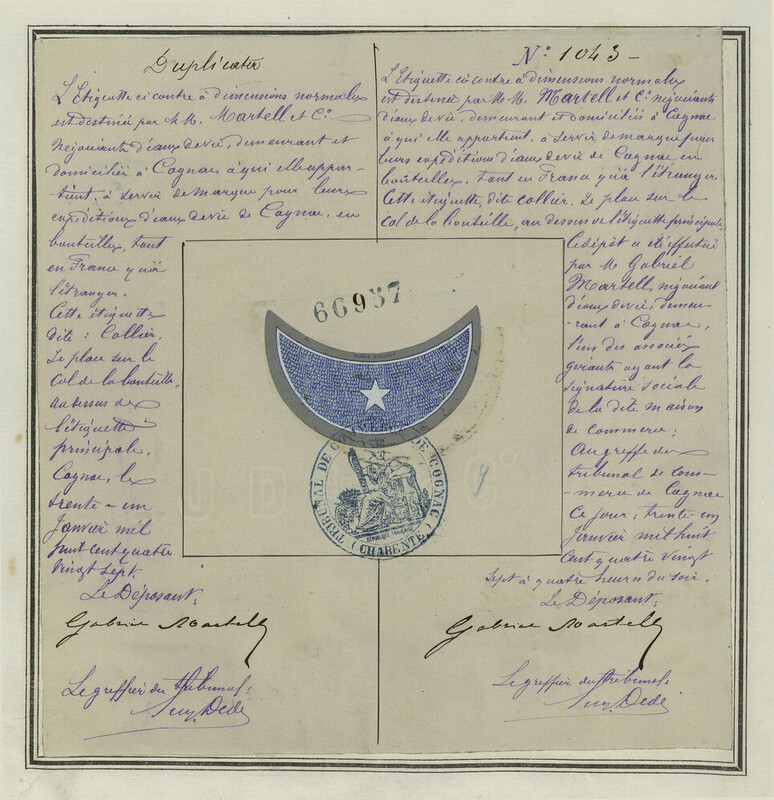 Duplicata
L'Etiquette ci contre à dimensions normales
est destinée par M.M. Martell et Cº
Négociants d'eaux de vie, demeurant et
domiciliés à Cognac, à qui elle appar-
-tient, à servir de marque pour leurs
expéditions d'eaux de vie de Cognac, en
bouteilles, tant
en France qu'à
l'étranger.
Cette étiquette
dite : Collier.
Se place sur le
Col de la bouteille,
au dessus de
l'étiquette
principale.
Cognac, le
trente-un
Janvier mil
huit cent quatre
vingt sept.
Le Déposant:
Gabriel Martell
Le greffier du tribunal:
Dédé
Nº 1043 -
L'Etiquette ci contre à dimensions normales
est destinée par M.M. Martell et Cº négociants
d'eaux de vie, demeurant et domiciliés à Cognac
à qui elle appartient, à servir de marque pour
leurs expéditions d'eaux de vie de Cognac en
bouteilles, tant en France qu'à l'étranger.
Cette étiquette, dite collier. Se place sur le
Col de la bouteille, au dessus de l'étiquette principale.
Le dépôt a été effectué
par M Gabriel
Martell, négociant
d'eaux de vie, demeu-
-rant à Cognac,
l'un des associés
gérants ayant la
signature sociale
de la dite maison
de commerce;
Au greffe du
tribunal de com-
-merce de Cognac
Ce jour; trente-un
janvier mil huit
cent quatre vingt
sept à quatre heures du soir.
Le Déposant:
Gabriel Martell
Le greffier du tribunal
Dédé
66937
TRIBUNAL DE COMMERCE DE COGNAC
RÉPUBLIQUE FRANÇAISE
(CHARENTE)